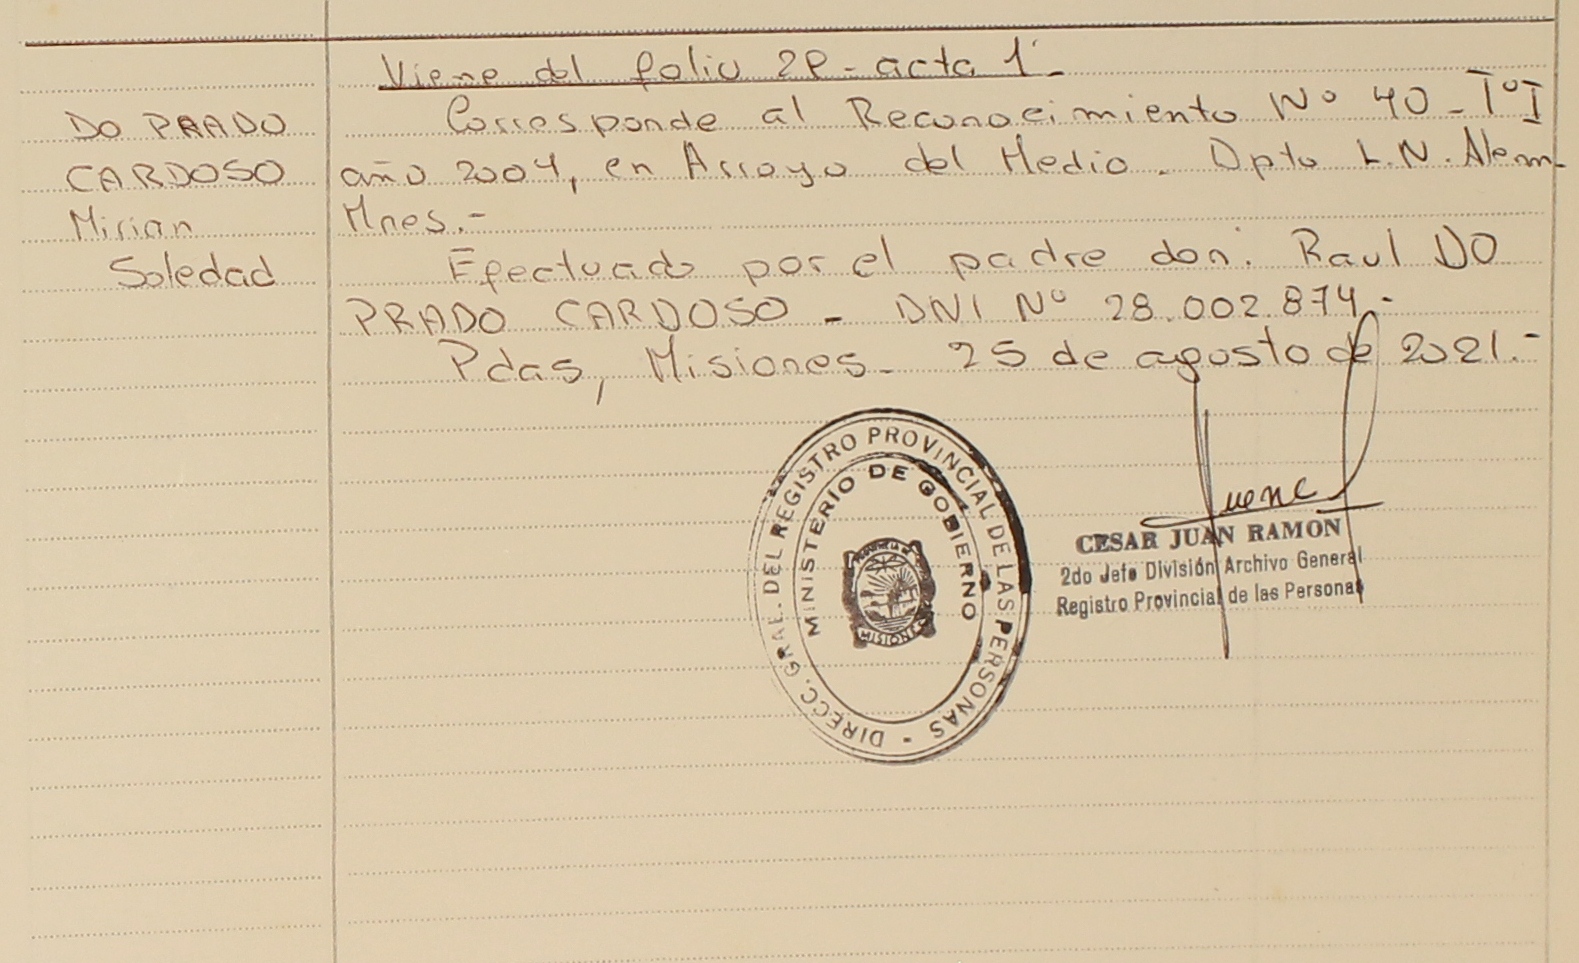 Viene del folio 2P - acta 1
DO PRADO
CARDOSO
Mirian
Soledad
Corresponde al Reconocimiento Nº 40 - TºI
año 2004, en Arroyo del Medio. Dpto L.N. Alem -
Mnes.-
Efectuado por el padre don: Raul DO
PRADO CARDOSO - DNI Nº 28.002.874.-
Pdas, Misiones - 25 de agosto de 2021.-
DIRECC. GRAL. DEL REGISTRO PROVINCIAL DE LAS PERSONAS -
MINISTERIO DE GOBIERNO
PROVINCIA DE
MISIONES
CESAR JUAN RAMON
2do Jefe División Archivo General
Registro Provincial de las Personas